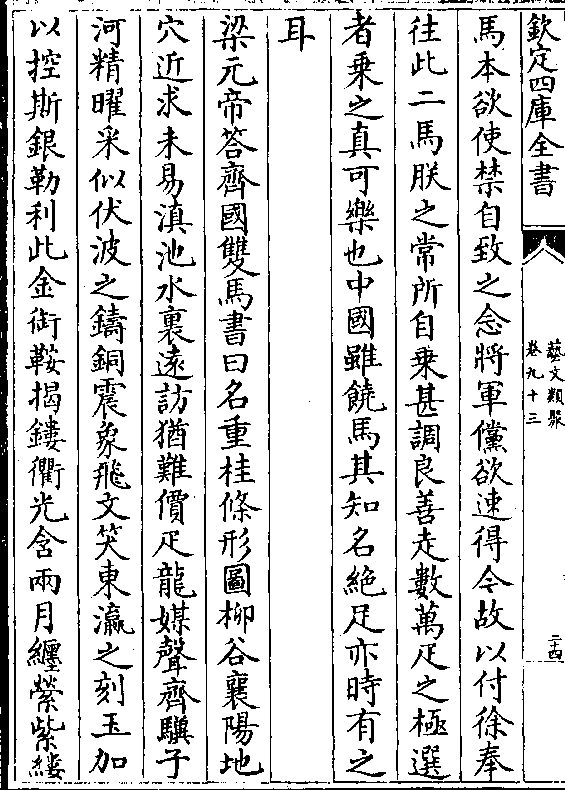 欽定四庫全書
藝文類聚
卷九十三
二十四
馬本欲使禁自致之念將軍儻欲速得今故以付徐奉
往此二馬朕之常所自乗甚調良善走數萬疋之極選
者乗之真可樂也中國雖饒馬其知名絶足亦時有之
耳
梁元帝答齊國雙馬書曰名重桂條形圖柳谷襄陽地
穴近求未易滇池水裏逺訪猶難價疋龍媒聲齊驥子
河精曜采似伏波之鑄銅震象飛文笑東瀛之刻玉加
以控斯銀勒利此金銜鞍揭鏤衢光含兩月纒縈紫縷